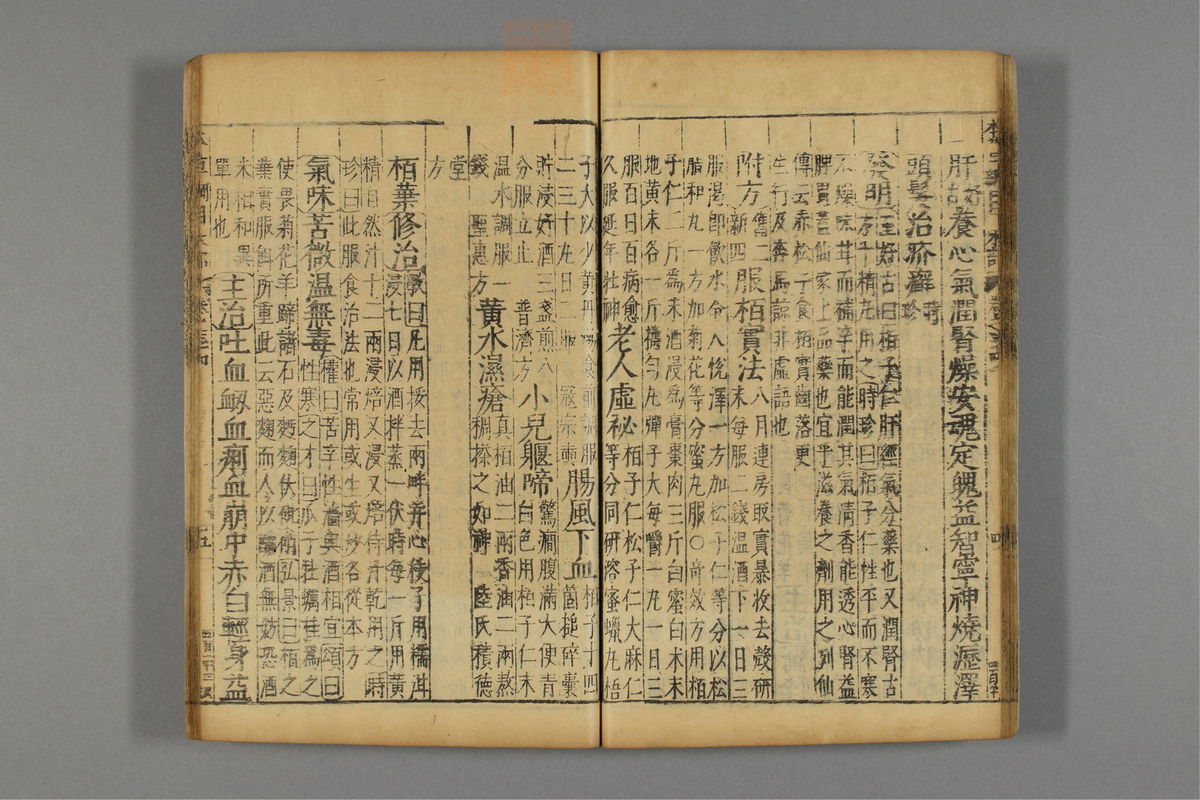 肝故養心氣潤腎燥安魂定魄益智寧神燒瀝澤
頭髮治疥癬時珍
發明王好古曰柏子仁肝經氣分藥也又潤腎古
方十精丸用之時珍曰柏子仁性平而不寒
不燥味甘而補辛而能潤其氣清香能透心腎益
脾胃蓋仙家上品藥也宜乎滋養之劑用之列仙
傳云赤松子食柏實齒落更
生行及奔馬諒非虛語也
附方舊二新四服柏實法八月連房取實暴收去殼研
末每服二錢温酒下一日三
服渴即飲水令人悅澤一方加松子仁等分以松
脂和丸一方加菊花等分蜜丸服○奇效方用柏
子仁二斤爲末酒浸爲膏棗肉三斤白蜜白朮末
地黃末各一斤擣勻丸彈子大每嚼一丸一日三
服百日百病愈
久服延年壯神老人虛祕柏子仁松子仁大麻仁
等分同研溶蜜蠟丸梧
子大以少黃丹湯食前調服
二三十丸日二服 寇宗奭腸風下血柏子十四
箇槌碎囊
貯浸好酒三盞煎八
分服立止 普濟方小兒躽啼驚癇腹滿大便青
白色用柏子仁末
温水調服一
錢 聖惠方黃水濕瘡真柏油二兩香油二兩熬
稠搽之如神 陸氏積德
堂
方
柏葉修治斅曰凡用挼去兩畔并心枝了用糯泔
浸七日以酒拌蒸一伏時每一斤用黃
精自然汁十二兩浸焙又浸又焙待汁乾用之時
珍曰此服食治法也常用或生或炒各從本方
氣味苦微温無毒權曰苦辛性澀與酒相宜頌曰
性寒之才曰瓜子牡蠣桂爲之
使畏菊花羊蹄諸石及麪麴伏硝弘景曰柏之
葉實服餌所重此云惡麴而人以釀酒無妨恐酒
米相和異
單用也主治吐血衂血痢血崩中赤白輕身益